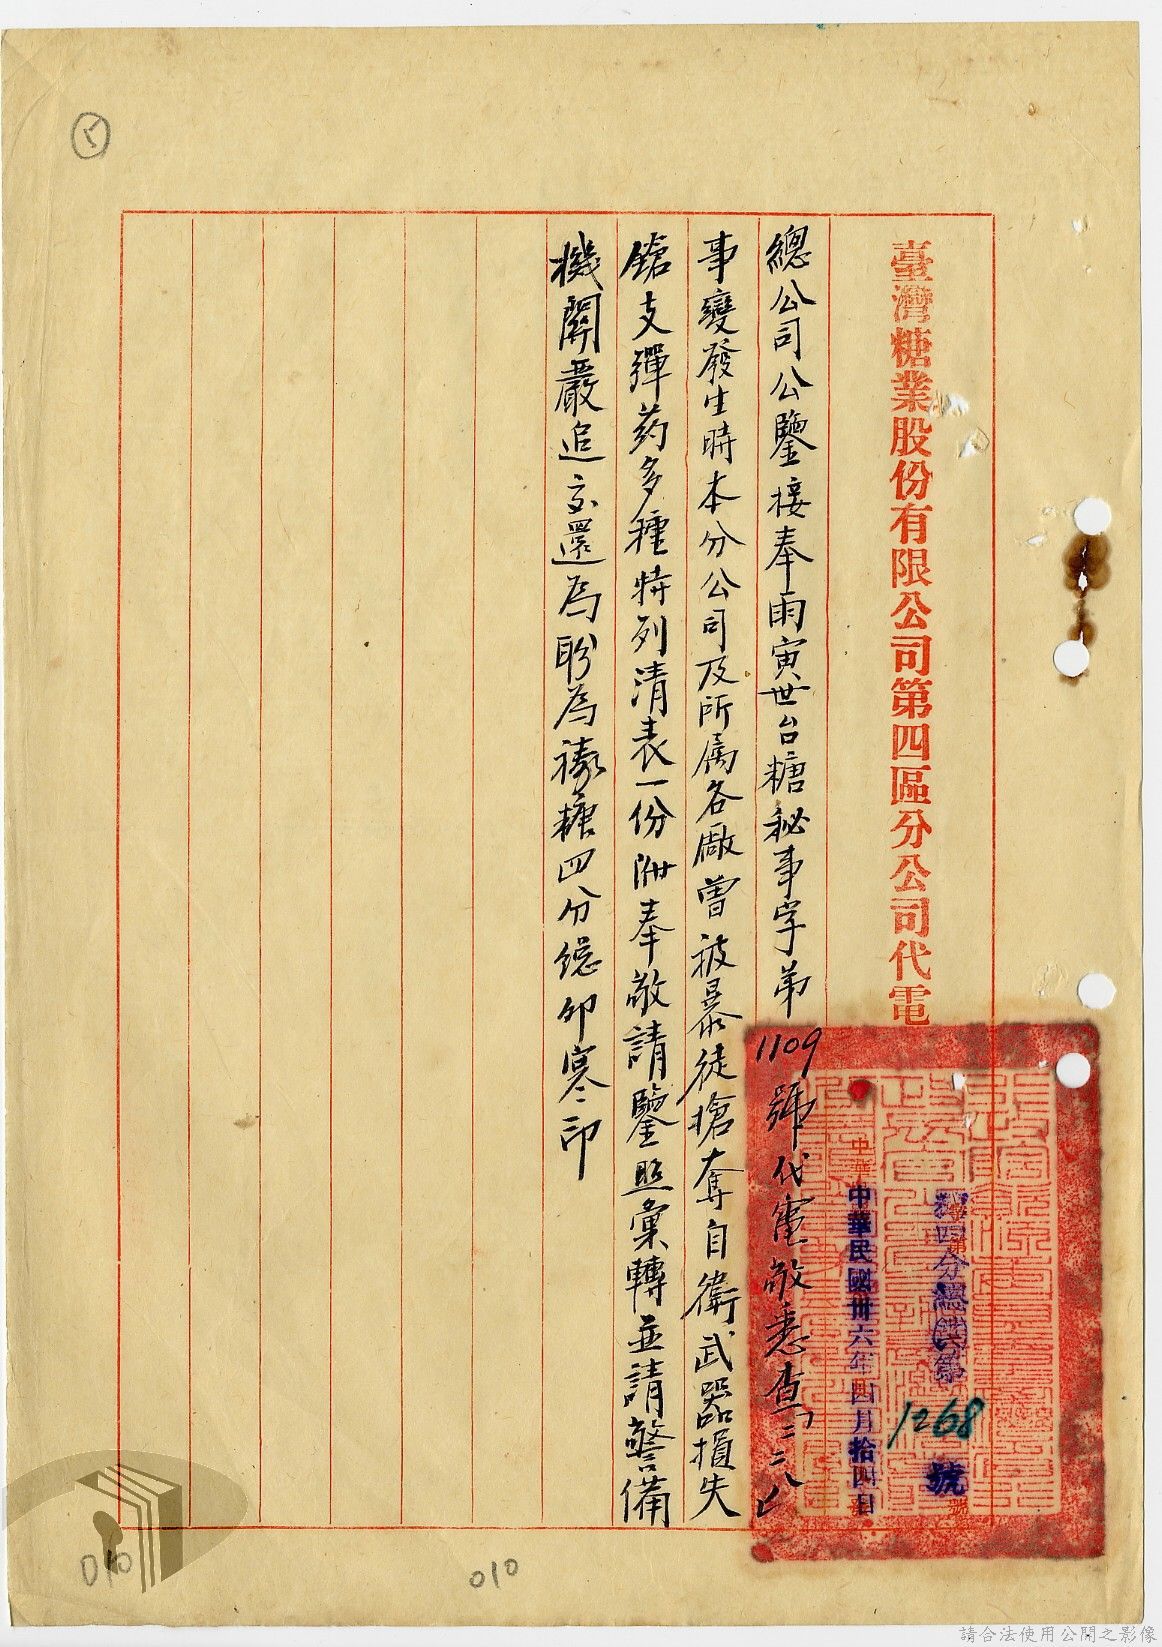 臺灣糖業股份有限公司第四區分公司代電
糖四分總
第1268號
中華民國卅六年四月拾四日
總公司公鑒接奉雨寅世台糖秘事字第1109號代電敬悉查「二二八」
事變發生時本分公司及所屬各廠曾被暴徒搶奪自衛武器損失
鎗支彈药多種特列清表一份附奉敬請鑒照彙轉並請警備
機關嚴追交還為盼為禱糖四分總卯寒印
010
010
請合法使用公開之影像